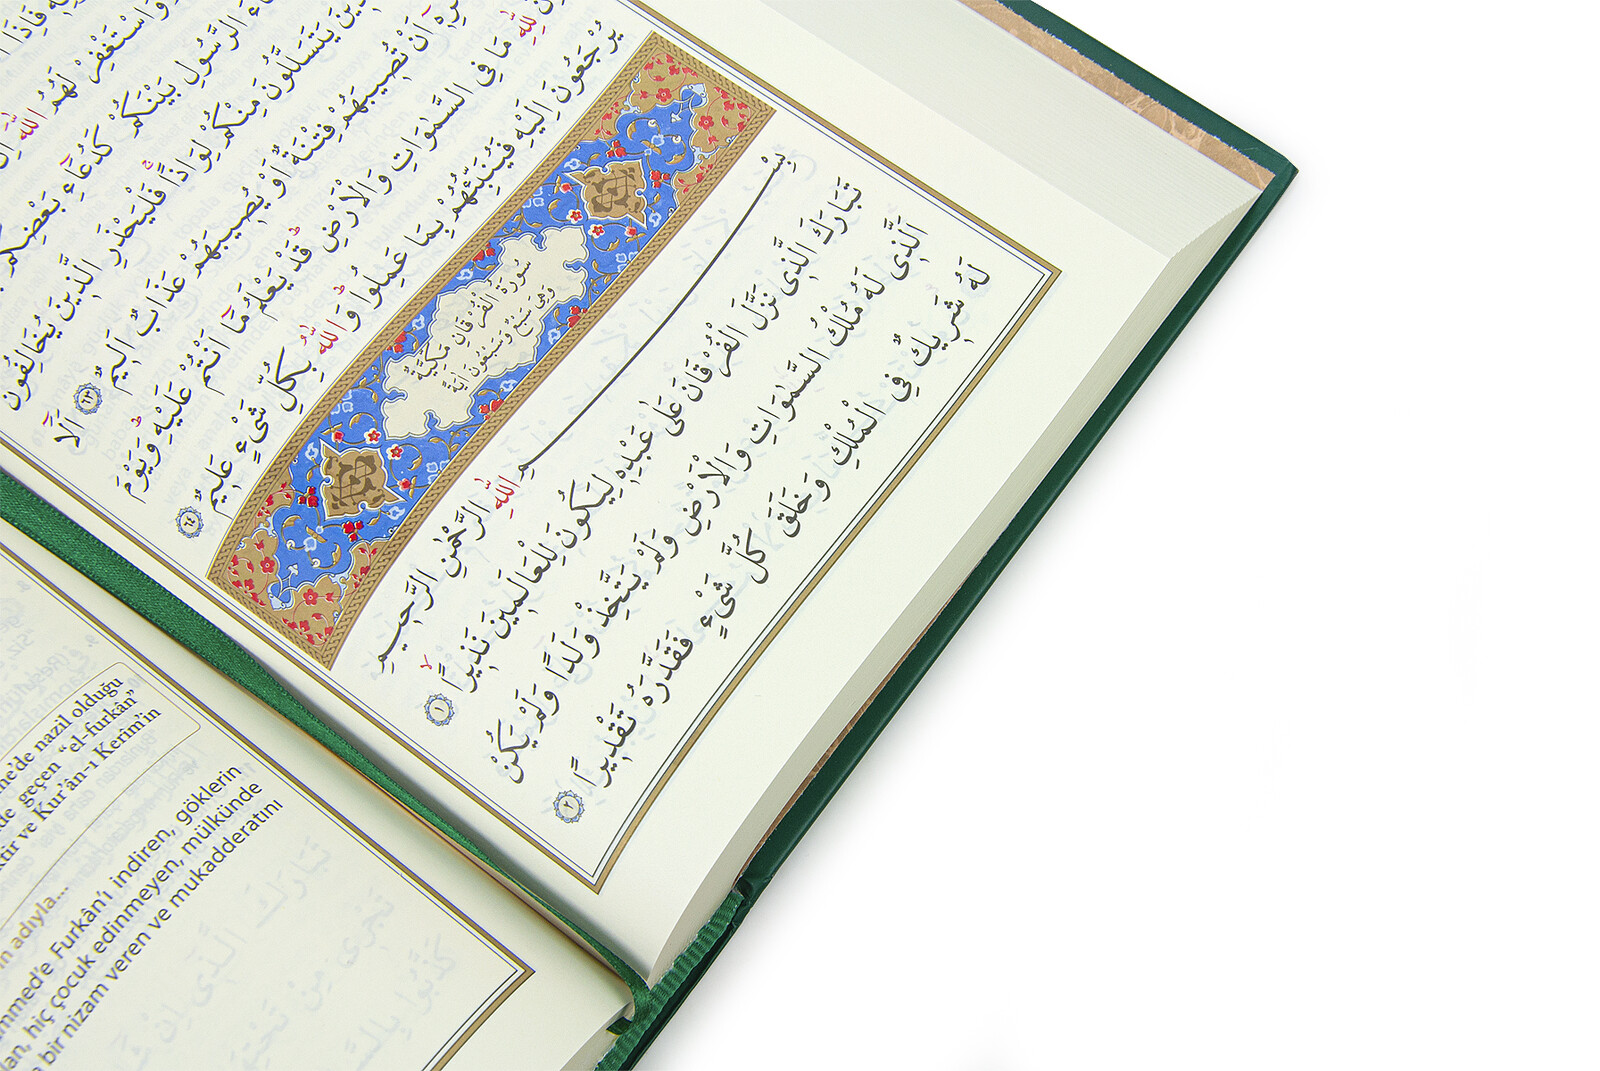 وَاسْتَغْفِرْ لَهُمُ اللّٰهَ اِنَّ
الرَّسُولِ بَيْنَكُمْ كَدُعَٓاءِ بَعْضِكُمْ
يَتَسَلَّلُونَ مِنْكُمْ لِوَاذًاۚ فَلْيَحْذَرِ الَّذ۪ينَ يُخَالِفُونَ
اَنْ تُص۪يبَهُمْ فِتْنَةٌ اَوْ يُص۪يبَهُمْ عَذَابٌ اَل۪يمٌ ﴿٦٣﴾ اَلَٓا
لِلّٰهِ مَا فِي السَّمٰوَاتِ وَالْاَرْضِۜ قَدْ يَعْلَمُ مَٓا اَنْتُمْ عَلَيْهِۜ وَيَوْمَ
يُرْجَعُونَ اِلَيْهِ فَيُنَبِّئُهُمْ بِمَا عَمِلُواۜ وَاللّٰهُ بِكُلِّ شَيْءٍ عَل۪يمٌ ﴿٦٤﴾
سُورَةُ الْفُرْقَانِ مَكِّيَّةٌ
وَهِيَ سَبْعٌ وَسَبْعُونَ اٰيَةً
بِسْمِ اللّٰهِ الرَّحْمٰنِ الرَّح۪يمِ
تَبَارَكَ الَّذ۪ي نَزَّلَ الْفُرْقَانَ عَلٰى عَبْدِه۪ لِيَكُونَ لِلْعَالَم۪ينَ نَذ۪يرًاۙ ﴿١﴾
اَلَّذ۪ي لَهُ مُلْكُ السَّمٰوَاتِ وَالْاَرْضِ وَلَمْ يَتَّخِذْ وَلَدًا وَلَمْ يَكُنْ
لَهُ شَر۪يكٌ فِي الْمُلْكِ وَخَلَقَ كُلَّ شَيْءٍ فَقَدَّرَهُ تَقْد۪يرًا ﴿٢﴾
de nazil olduğu
geçen "el-furkân"
ve Kur'ân-ı Kerîm'in
adıyla...
Furkân'ı indiren, göklerin
hiç çocuk edinmeyen, mülkünde
bir nizam veren ve mukadderatını